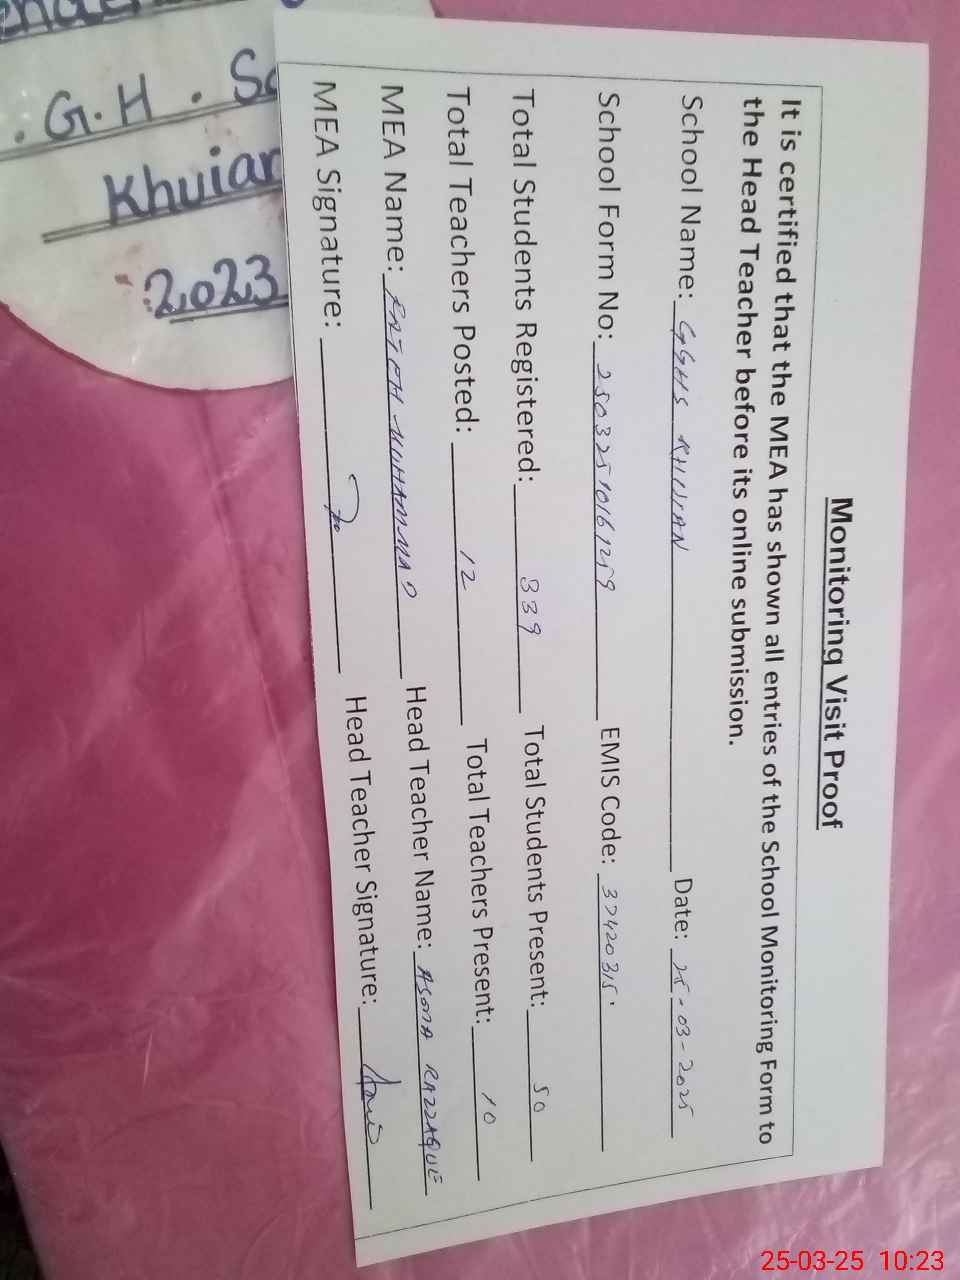 Monitoring Visit Proof
It is certified that the MEA has shown all entries of the School Monitoring Form to
the Head Teacher before its online submission.
School Name: GGHS KHUIAN Date: 25-03-2025
School Form No: 25032510161259 EMIS Code: 37420315
Total Students Registered: 339 Total Students Present: 50
Total Teachers Posted: 12 Total Teachers Present: 10
MEA Name: FATEH MUHAMMAD Head Teacher Name: ASMA RAZZAQUE
MEA Signature: Head Teacher Signature:
G.H. Sc
Khuian
2023
25-03-25 10:23